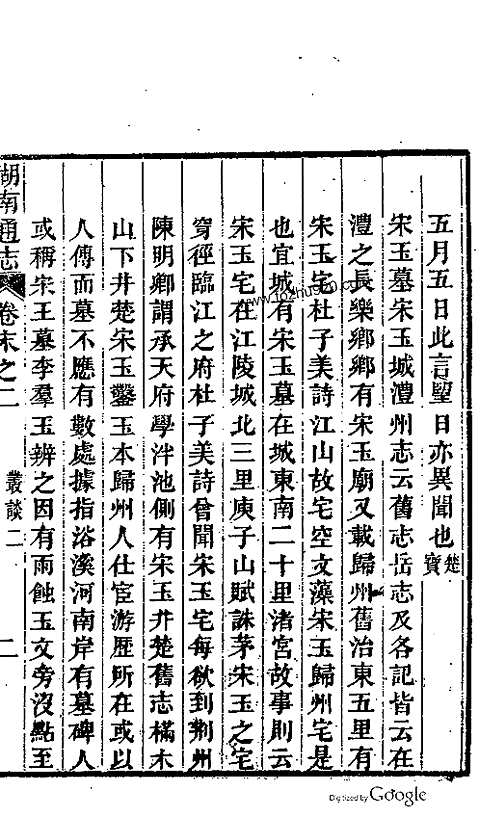 五月五日此言聖日亦異聞也楚寶
宋玉墓宋玉城澧州志云舊志岳志及各記皆云在
澧之長樂鄉鄉有宋玉廟又載歸州舊治東五里有
宋玉宅杜子美詩江山故宅空文藻宋玉歸州宅是
也宜城有宋玉墓在城東南二十里渚宮故事則云
宋玉宅在江陵城北三里庾子山賦誅茅宋玉之宅
穿徑臨江之府杜子美詩曾聞宋玉宅每欲到荆州
陳明卿謂承天府學泮池側有宋玉井楚舊志橘木
山下井楚宋玉鑿玉本歸州人仕宦游歴所在或以
人傳而墓不應有數處據指浴溪河南岸有墓碑人
或稱宋王墓李羣玉辨之因有雨蝕玉文旁沒點至
湖南通志 卷末之二 叢談二 二
www.fozhu920.com
Digitized by Google